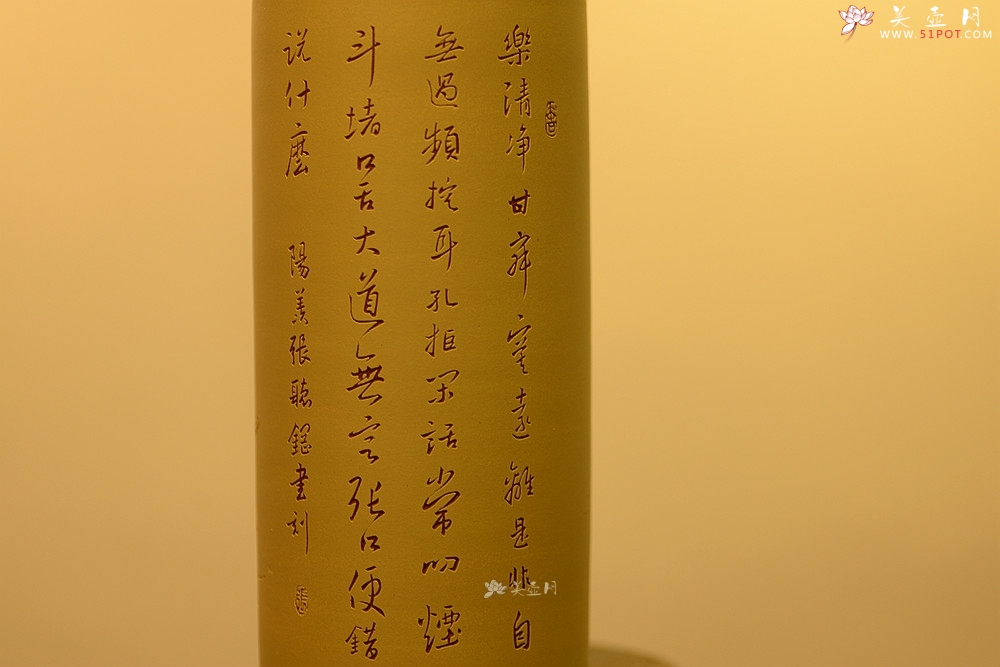 樂清净甘寂寞遠離是非自
無過頻挖耳孔拒閑話常叼煙
斗堵口舌大道無言張口便錯
说什麽
陽羡張聽鋼書刻
美壶网
WWW.51POT.COM
美壶网